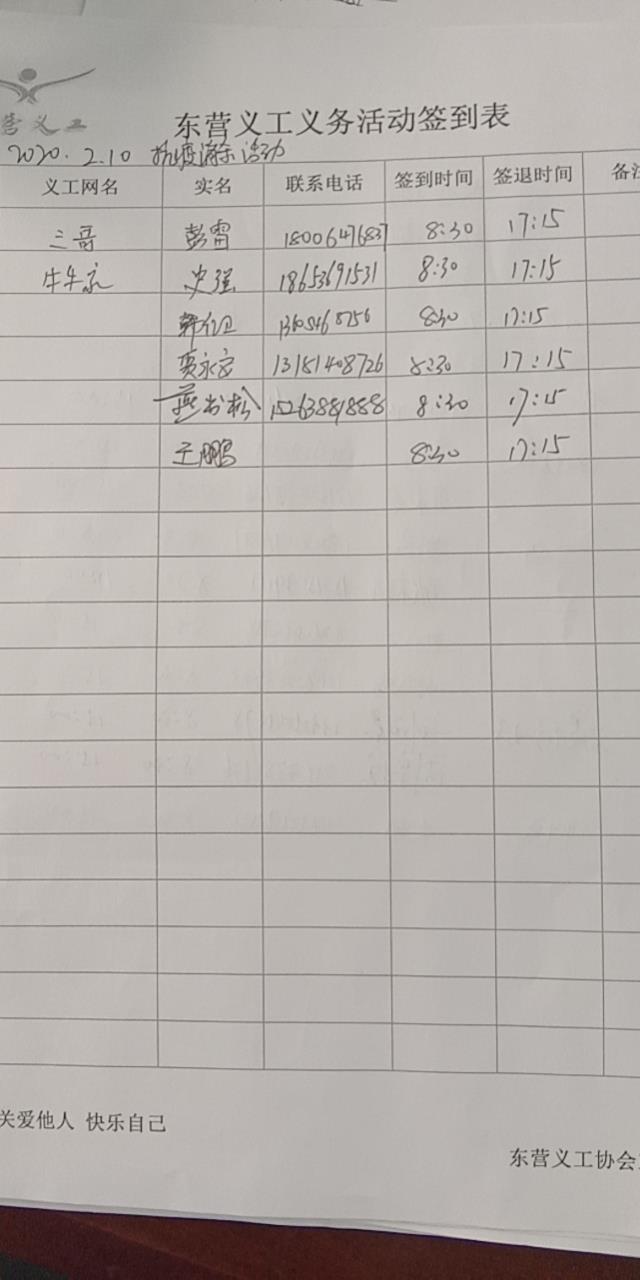 营义工
东营义工义务活动签到表
2020.2.10 抗疫消杀活动
义工网名 实名 联系电话 签到时间 签退时间 备注
三哥 彭雷 18006476837 8:30 17:15
牛牛 史强 18653691531 8:30 17:15
8:30 17:15
永宏 13181408726 8:30 17:15
燕书松 15263881888 8:30 17:15
王鹏 8:30 17:15
关爱他人 快乐自己
东营义工协会